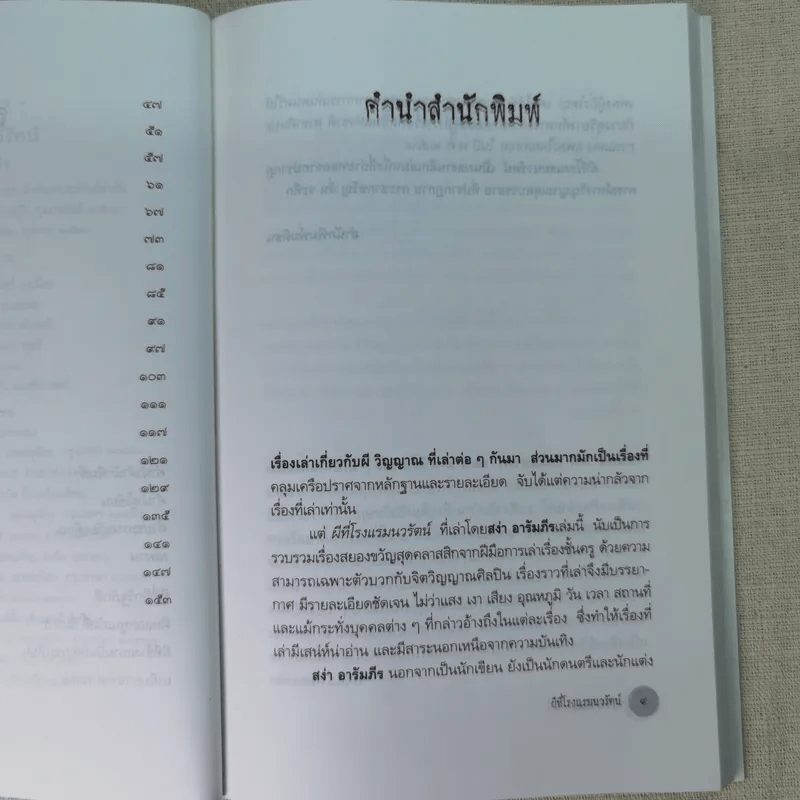 ๔๗
๕๑
๕๗
๖๑
๖๗
๗๓
๘๑
๘๕
๙๑
๙๗
๑๐๓
๑๑๑
๑๑๗
๑๒๑
๑๒๙
๑๓๕
๑๔๑
๑๔๗
๑๕๓
คำนำสำนักพิมพ์
เรื่องเล่าเกี่ยวกับผี วิญญาณ ที่เล่าต่อ ๆ กันมา ส่วนมากมักเป็นเรื่องที่
คลุมเครือปราศจากหลักฐานและรายละเอียด จับได้แต่ความน่ากลัวจาก
เรื่องที่เล่าเท่านั้น
แต่ ผีที่โรงแรมนวรัตน์ ที่เล่าโดยสง่า อารัมภีรเล่มนี้ นับเป็นการ
รวบรวมเรื่องสยองขวัญสุดคลาสสิกจากฝีมือการเล่าเรื่องชั้นครู ด้วยความ
สามารถเฉพาะตัวบวกกับจิตวิญญาณศิลปิน เรื่องราวที่เล่าจึงมีบรรยา-
กาศ มีรายละเอียดชัดเจน ไม่ว่าแสง เงา เสียง อุณหภูมิ วัน เวลา สถานที่
และแม้กระทั่งบุคคลต่าง ๆ ที่กล่าวอ้างถึงในแต่ละเรื่อง ซึ่งทำให้เรื่องที่
เล่ามีเสน่ห์น่าอ่าน และมีสาระนอกเหนือจากความบันเทิง
สง่า อารัมภีร นอกจากเป็นนักเขียน ยังเป็นนักดนตรีและนักแต่ง
ผีที่โรงแรมนวรัตน์